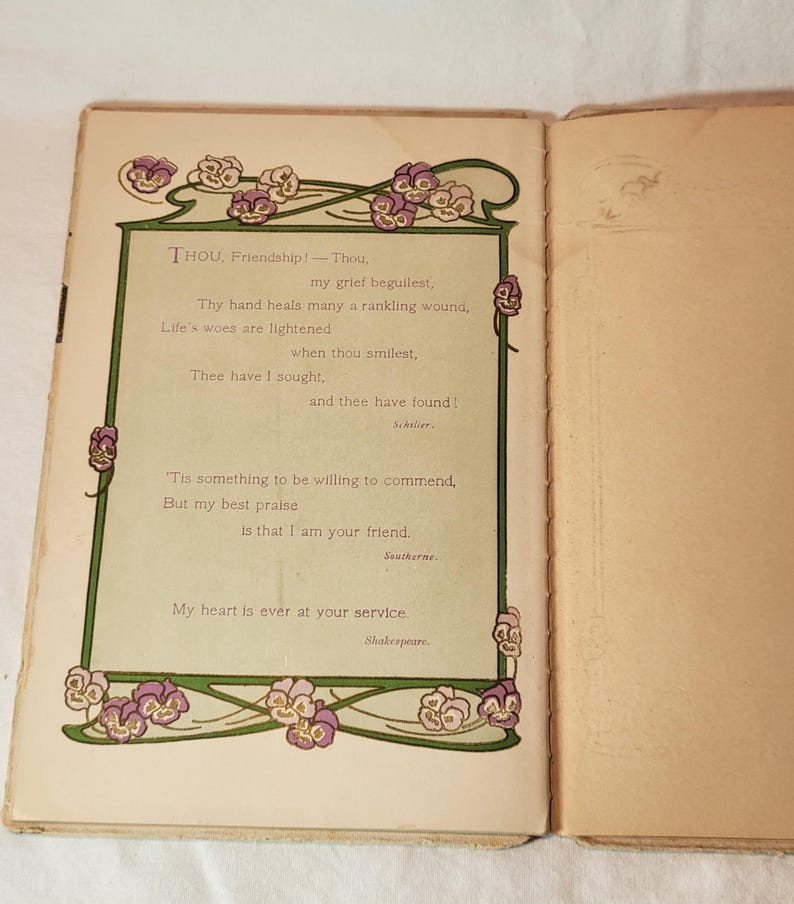 THOU, Friendship! — Thou,
my grief beguilest,
Thy hand heals many a rankling wound,
Life's woes are lightened
when thou smilest,
Thee have I sought,
and thee have found!
Schiller.
'Tis something to be willing to commend,
But my best praise
is that I am your friend.
Southerne.
My heart is ever at your service.
Shakespeare.